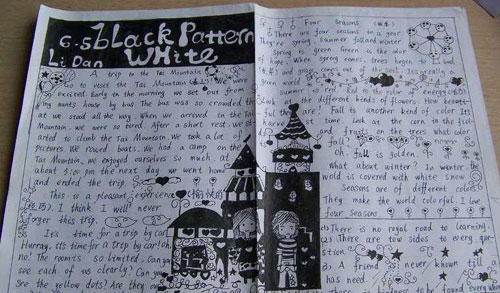 6.5 bLack Pattern
Li Dan WHite
A trip to the Tai Mountain
Go to visit the Tai Mountain We were
excited. Early in the morning, we set out from
ing aunt's house by bus. The bus was so crowded th
at we stood all the way. When we arrived in the Tai
Mountain, we were so tired. After a short rest, we st
arted to climb the Tai Mountain. We took a lot o
pictures. We rowed boats. We had a camp on the
Tai Mountain, we enjoyed ourselves so much. at
about 5:00 pm the next day we went home
and ended the trip
This is a pleasant experience (愉快的
I think I well never
forger this trip.
It's time for a trip by car!
Hurray, it's time for a trip by car! oh,
no! The room's so limited, can you
see each of us clearly? Can you
see the yellow dots? Are they ou
Four Seasons
There are four seasons in a year
They're spring summer fall and winter
Spring is green. Green is the color
of hope. When spring comes, trees begin to bud
and grass comes out of the
green world
Summer is red. Red is the color of energy
Look at the different kinds of flowers. How beauti-
ful they are! Fall is another kind of color. It's
harvest time. Look at the corn in the fields
and fruits on the trees what color
is fall?
Oh, fall is golden.
What about winter? In winter the
world is covered with white snow.
Seasons are of different colors
They make the world colorful. I love
four seasons
(1) There is no royal road to learning.
(2) There are tow sides to every
stion.
(3) A friend is never known till a
has need.